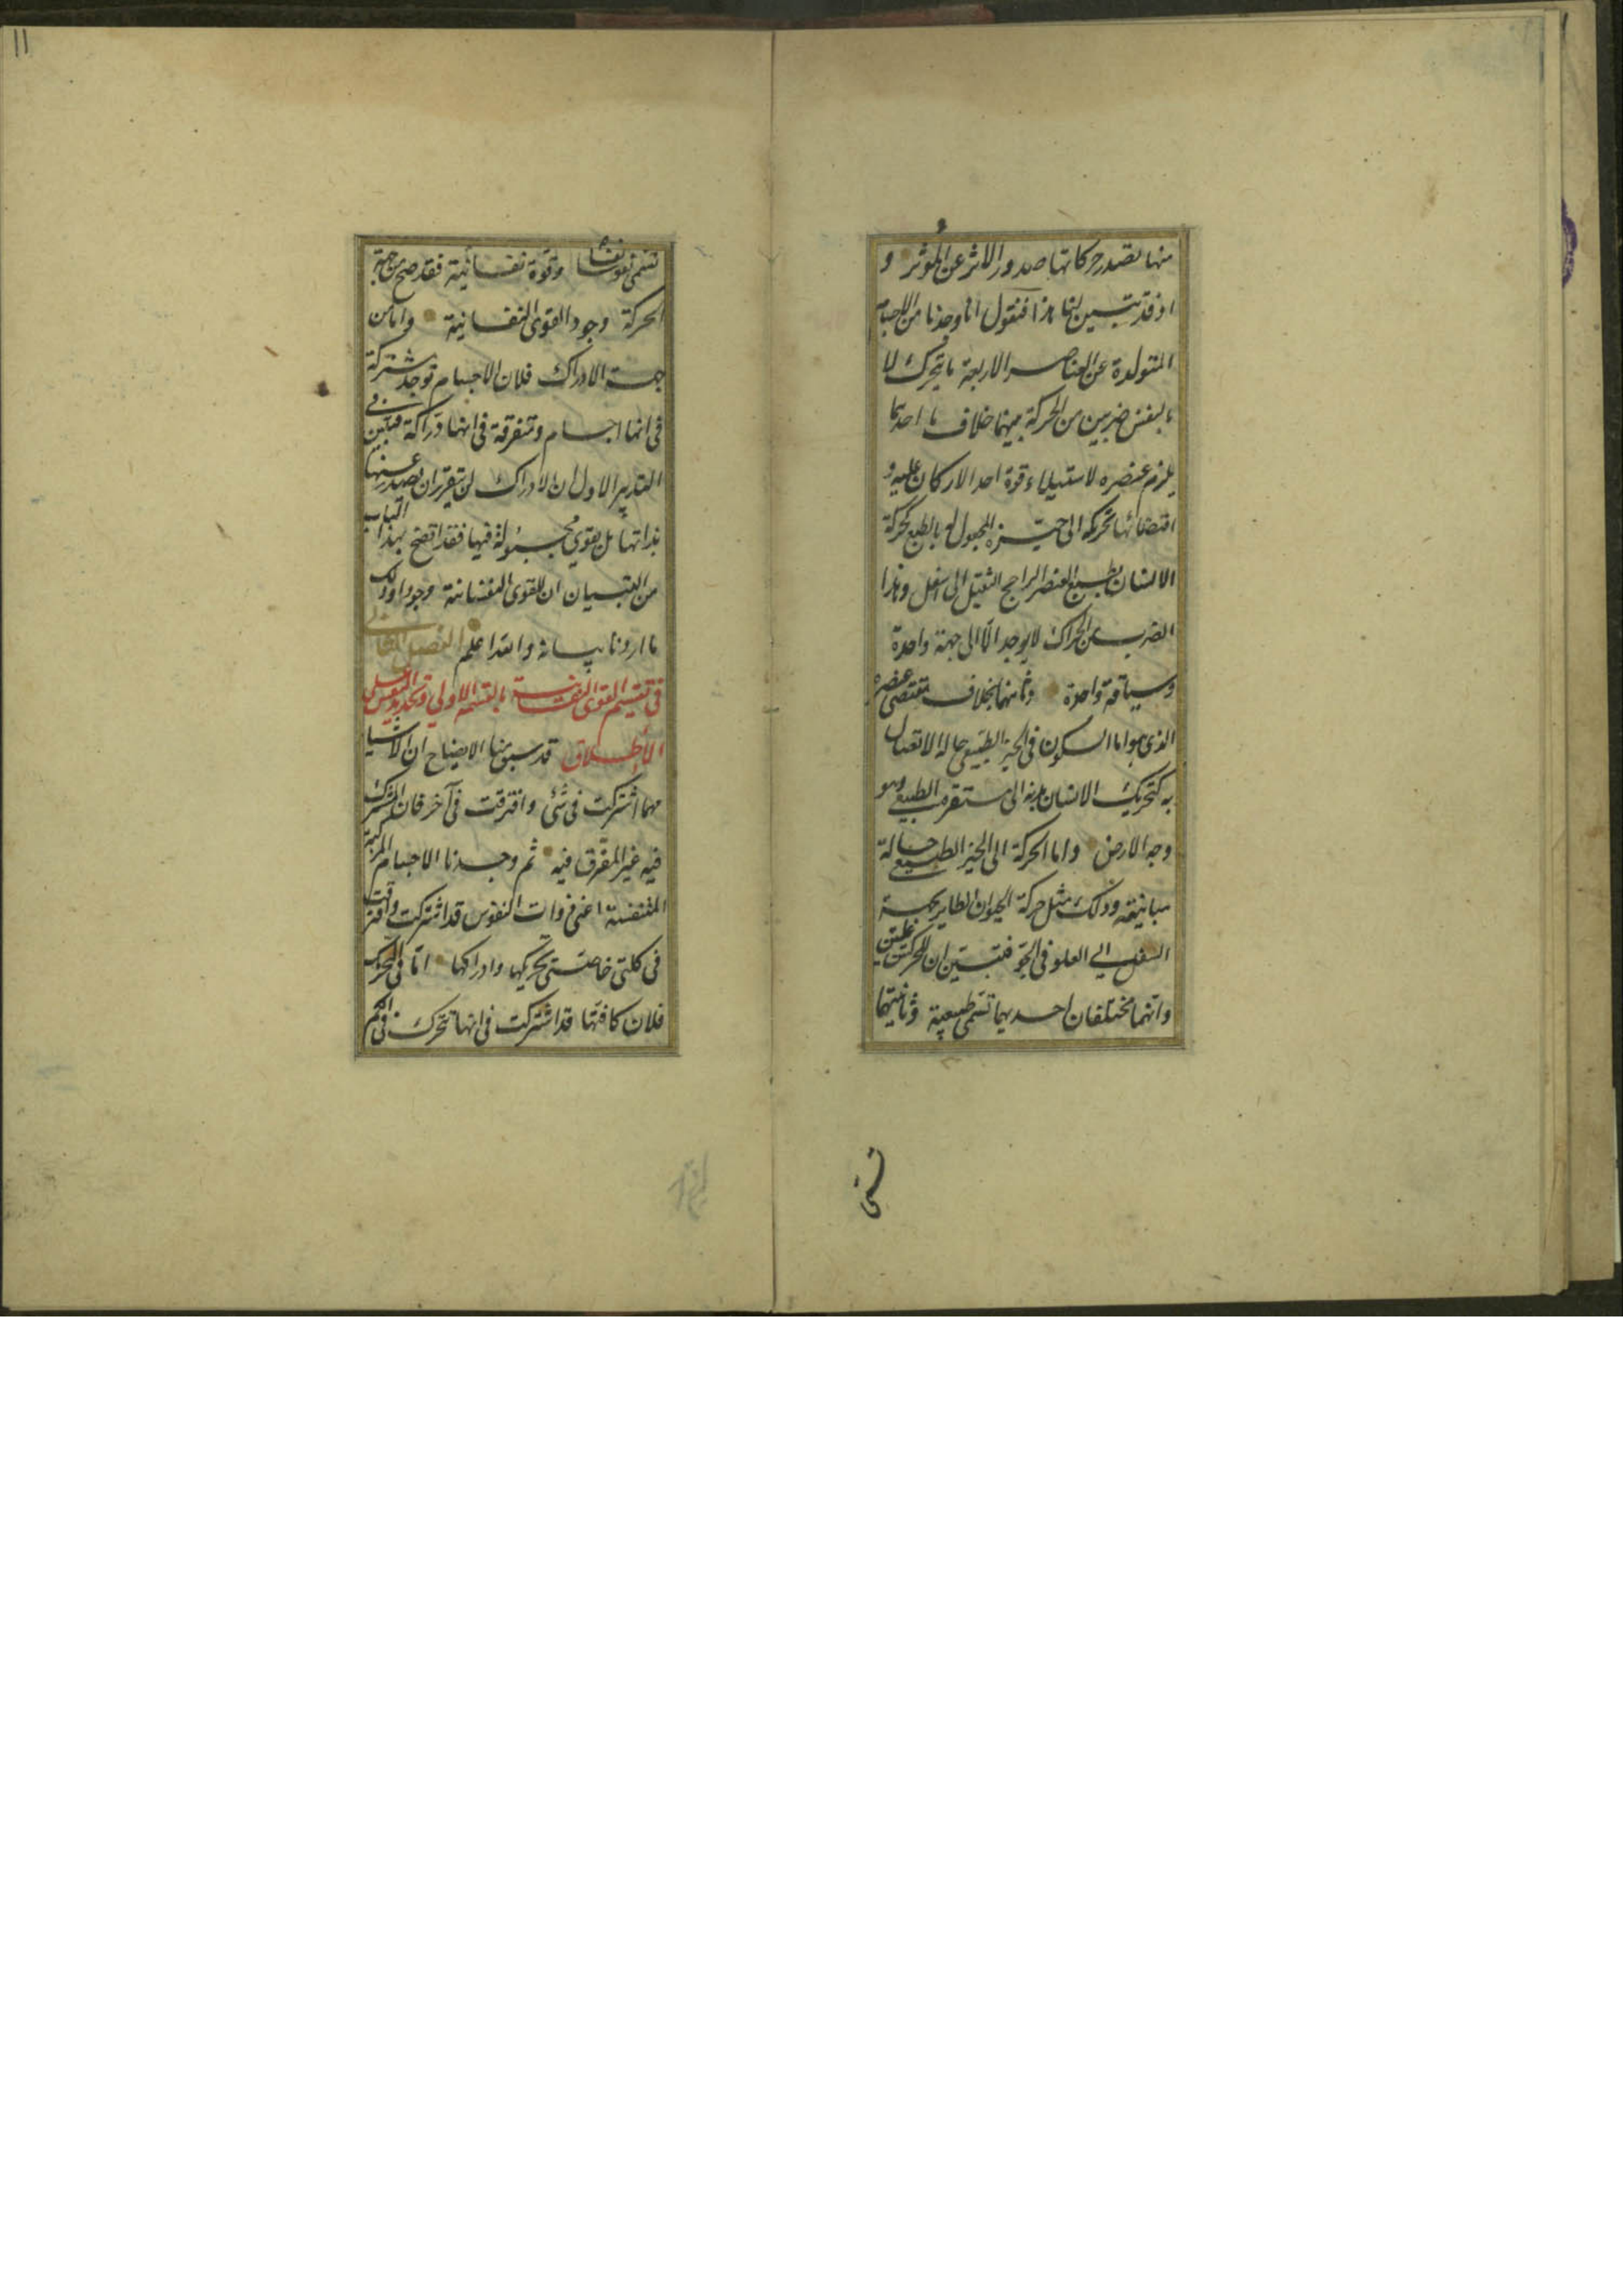 منها تصدر حركاتها صدور الاثر عن المؤثر و
اذ قد تبين لنا هذا فنقول انا وجدنا من الاجسام
المتولدة عن العناصر الاربعة ما يتحرك لا
بالقسر ضربين من الحركة بينهما خلاف ما احدهما
يلزم عنصره لاستيلاء قوة احد الاركان عليه و
اقتضائها تحريكه الى حيزه المجبول له بالطبع كحركة
الانسان بطبع العنصر الراجح الثقيل الى اسفل وهذا
الضرب من الحراك لا يوجد الّا الى جهة واحدة
وسياقة واحدة وثانيهما بخلاف مقتضى عنصره
الذى هو اما السكون فى الحيز الطبيعى حالة الاتصال
به كتحريك الانسان بدنه الى مستقره الطبيعى وهو
وجه الارض واما الحركة الى الحيز الطبيعى حالة
مباينته وذلك مثل حركة الحيوان الطاير بجسمه
الثقيل الى العلو فى الجو فتبين ان للحركتين علتين
وانهما مختلفان احديهما تسمى طبيعية وثانيتهما
تسمى
١١
تسمى نفسا وقوة نفسانية فقد صح من جهة
الحركة وجود القوى النفسانية واما من
جهة الادراك فلان الاجسام توجد مشتركة
فى انها اجسام ومتفرقة فى انها دراكة فتبين
التدبير الاول ان الادراك لن يتقرر ان يصدر عنها
بذاتها بل بقوى محمولة فيها فقد اتضح بهذا
من التبيان ان للقوى النفسانية وجودا وذلك
ما اردنا بيانه والله اعلم الفصل الثانى
فى تقسيم القوى النفسانية بالقسمة الاولى وتحديد النفس على
الاطلاق قد سبق منا الايضاح ان الاشيا
مهما اشتركت فى شئ وافترقت فى آخر فان المشترك
فيه غير المفرق فيه ثم وجدنا الاجسام المركبة
المتنفسة اعنى ذوات النفوس قد اشتركت وافترقت
فى كلتى خاصتى تحريكها وادراكها امّا فى التحريك
فلان كافتها قد اشتركت فى انها تتحرك فى الكم